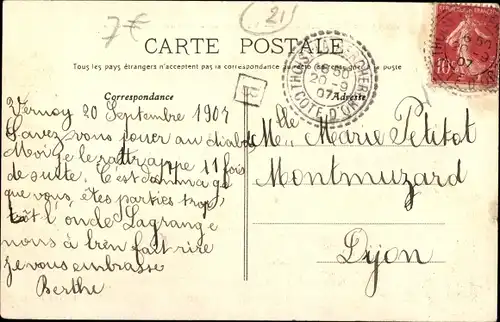 7€
21
CARTE POSTALE
Tous les pays étrangers n'acceptent pas la correspondance au recto
Correspondance
Adresse
CÔTE D'OR
20-9
07
10
Vernoy 20 Septembre 1907
Savez vous jouer au diabolo
Moi je le rattrappe 11 fois
de suite. C'est dommage
que vous êtes parties trop
tôt l'oncle Lagrange
nous a bien fait rire
je vous embrasse
Berthe
Mlle Marie Petitot
Montmuzard
Dijon